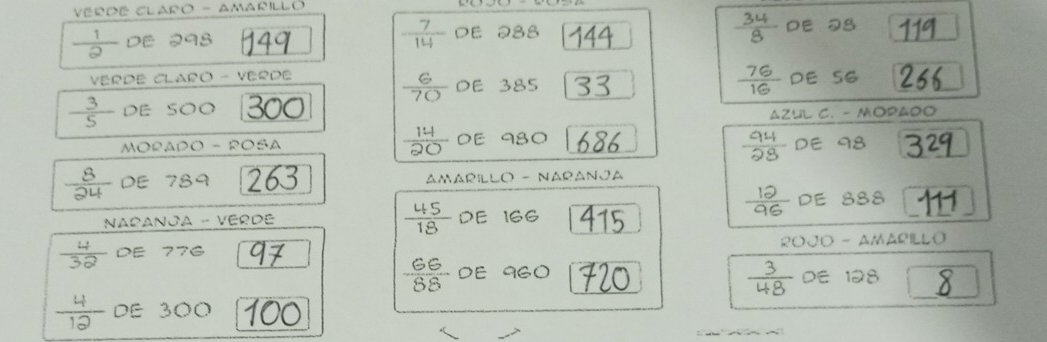 VERDE CLARO - AMARILLO
1/2 DE 298 149
VERDE CLARO - VERDE
3/5 DE 500 300
MORADO - ROSA
8/24 DE 789 263
NARANJA - VERDE
4/32 DE 776 97
4/12 DE 300 100
7/14 DE 288 144
6/70 DE 385 33
14/20 DE 980 686
AMARILLO - NARANJA
45/18 DE 166 415
66/88 DE 960 720
34/8 DE 28 119
76/16 DE 56 266
AZUL C. - MORADO
94/28 DE 98 329
12/96 DE 888 111
ROJO - AMARILLO
3/48 DE 128 8